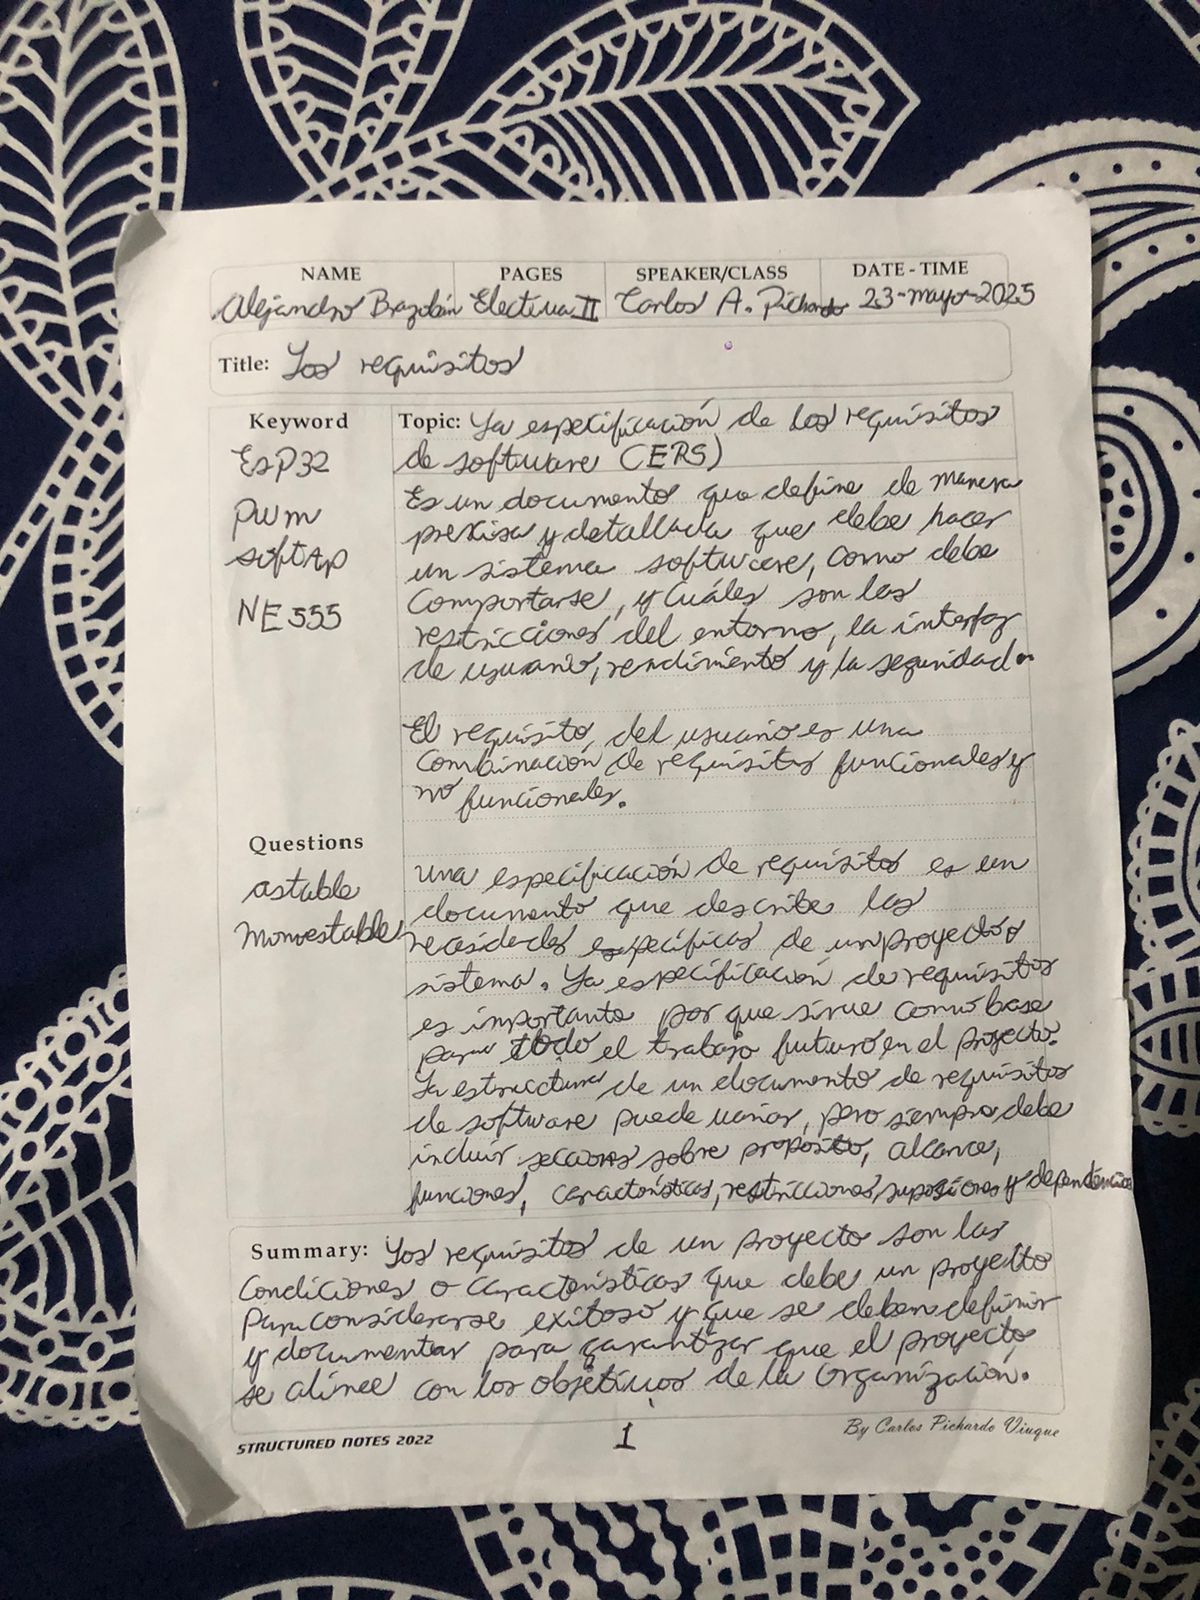 NAME PAGES SPEAKER/CLASS DATE - TIME
Alejandro Brazobán Electiva II Carlos A. Pichardo 23-mayo-2025
Title: Los requisitos
Keyword
ESP32
PWM
softAp
NE555
Topic: La especificación de los requisitos
de software (ERS)
Es un documento que define de manera
precisa y detallada que debe hacer
un sistema software, como debe
comportarse, y cuáles son las
restricciones del entorno, la interfaz
de usuario, rendimiento y la seguridad.
El requisito, del usuario es una
combinación de requisitos funcionales y
no funcionales.
Questions
astable
Monoestable
Una especificación de requisitos es un
documento que describe las
necesidades específicas de un proyecto o
sistema. La especificación de requisitos
es importante por que sirve como base
para todo el trabajo futuro en el proyecto.
La estructura de un documento de requisitos
de software puede variar, pero siempre debe
incluir secciones sobre propósito, alcance,
funciones, características, restricciones, suposiciones y dependencias
Summary: Los requisitos de un proyecto son las
condiciones o características que debe un proyecto
para considerarse exitoso y que se deben definir
y documentar para garantizar que el proyecto
se alinee con los objetivos de la organización.
STRUCTURED NOTES 2022
1
By Carlos Pichardo Viuque